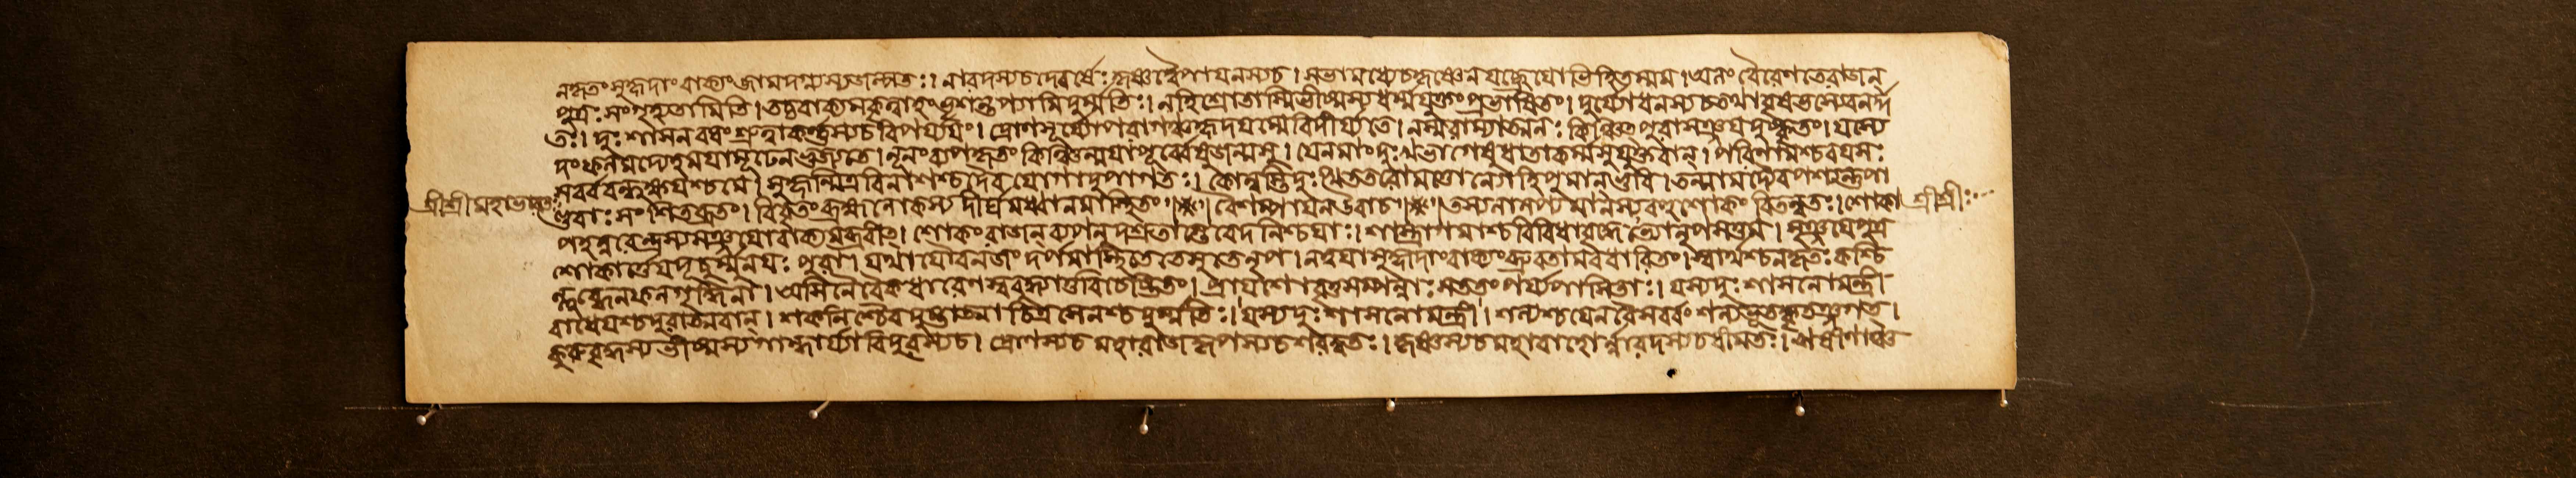 নকৃতং সুহৃদাং বাক্যং জামদগ্ন্যস্যজল্পতঃ। নারদস্যচদেবর্ষেঃ কৃষ্ণদ্বৈপায়নস্যচ। সভামধ্যেচকৃষ্ণেন যচ্ছ্রেযোভিহিতম্মম। অলং বৈরেণতেরাজন্
পুত্রঃ সংগৃহ্যতামিতি। তচ্চবাক্যমকৃত্বাহং ভৃশন্তপ্যামিদুর্ম্মতিঃ। নহিশ্রোতাস্মিভীষ্মস্যধর্ম্মযুক্তং প্রভাষিতং। দুর্য্যোধনস্যচতথাবৃষভস্যেবনর্দ্দ
তঃ। দুঃশাসনবধং শ্রুত্বাকর্ণ্ণস্যচবিপর্য্যযং। দ্রোণসূর্য্যোপরাগঞ্চহৃদযম্মেবিদীর্য্যতে। নস্মরাম্যাত্মনঃ কিঞ্চিৎপুরাসঞ্জযদুষ্কৃতং। যস্যে
দংফলমদ্যেহমযামূঢেনভুজ্যতে। নূনং ব্যপকৃতং কিঞ্চিন্মযাপূর্ব্বেষুজন্মসু। যেনমাং দুঃখভাগেষুধাতাকর্ম্মসুযুক্তবান্। পরিণামশ্চবযসঃ
সর্ব্ববন্ধুক্ষযশ্চমে। সুহৃন্মিত্রবিনাশশ্চদৈবযোগাদুপাগতঃ। কোন্বস্তিদুঃখিততরোমত্তোলোকেহিপুমান্ভুবি। তন্মামদ্যৈবপশ্যন্তুপা
শ্রীশ্রীমহাভারত
ণ্ডবাঃ সংশিতব্রতং। বিবৃতং ব্রহ্মলোকস্য দীর্ঘমধ্বানমাস্থিতং।।※।। বৈশম্পাযনউবাচ।।※।। তস্যলালপ্যমানস্যবহুশোকং বিতন্বতঃ। শোকা
শ্রীশ্রীঃ
পহন্নরেন্দ্রস্যসঞ্জযোবাক্যমব্রবীৎ। শোকং রাজন্ব্যপনুদশ্রুতাস্তেবেদনিশ্চযাঃ। শাস্ত্রাগমাশ্চবিবিধাবৃদ্ধেভ্যোনৃপসত্তম। সৃঞ্জযেপুত্র
শোকার্ত্তেযদূচুর্ম্মুনযঃ পুরা। যথাযৌবনজং দর্পমাস্থিতেতেসুতেনৃপ। নত্বযাসুহৃদাং বাক্যং ব্রুবতামবধারিতং। স্বার্থশ্চনকৃতঃ কশ্চি
ল্লুব্ধেনফলগৃদ্ধিনা। অসিনৈবৈকধারেণস্ববুদ্ধ্যাতুবিচেষ্টিতং। প্রাযশোবৃত্তসম্পন্নাঃ সততং পর্য্যুপাসিতাঃ। যস্যদুঃশাসনোমন্ত্রী
রাধেযশ্চদুরাত্মবান্। শকুনিশ্চৈবদুষ্টাত্মা চিত্রসেনশ্চদুর্ম্মতিঃ। যস্যদুঃশাসনোমন্ত্রী। শল্যশ্চযেনবৈসর্ব্বং শল্যভূতংকৃতঞ্জগত্।
কুরুবৃদ্ধস্যভীষ্মস্যগান্ধার্য্যাবিদুরস্যচ। দ্রোণস্যচমহারাজকৃপস্যচশরদ্বতঃ। কৃষ্ণস্যচমহাবাহোর্ন্নারদস্যচধীমতঃ। ঋষীণাঞ্চ